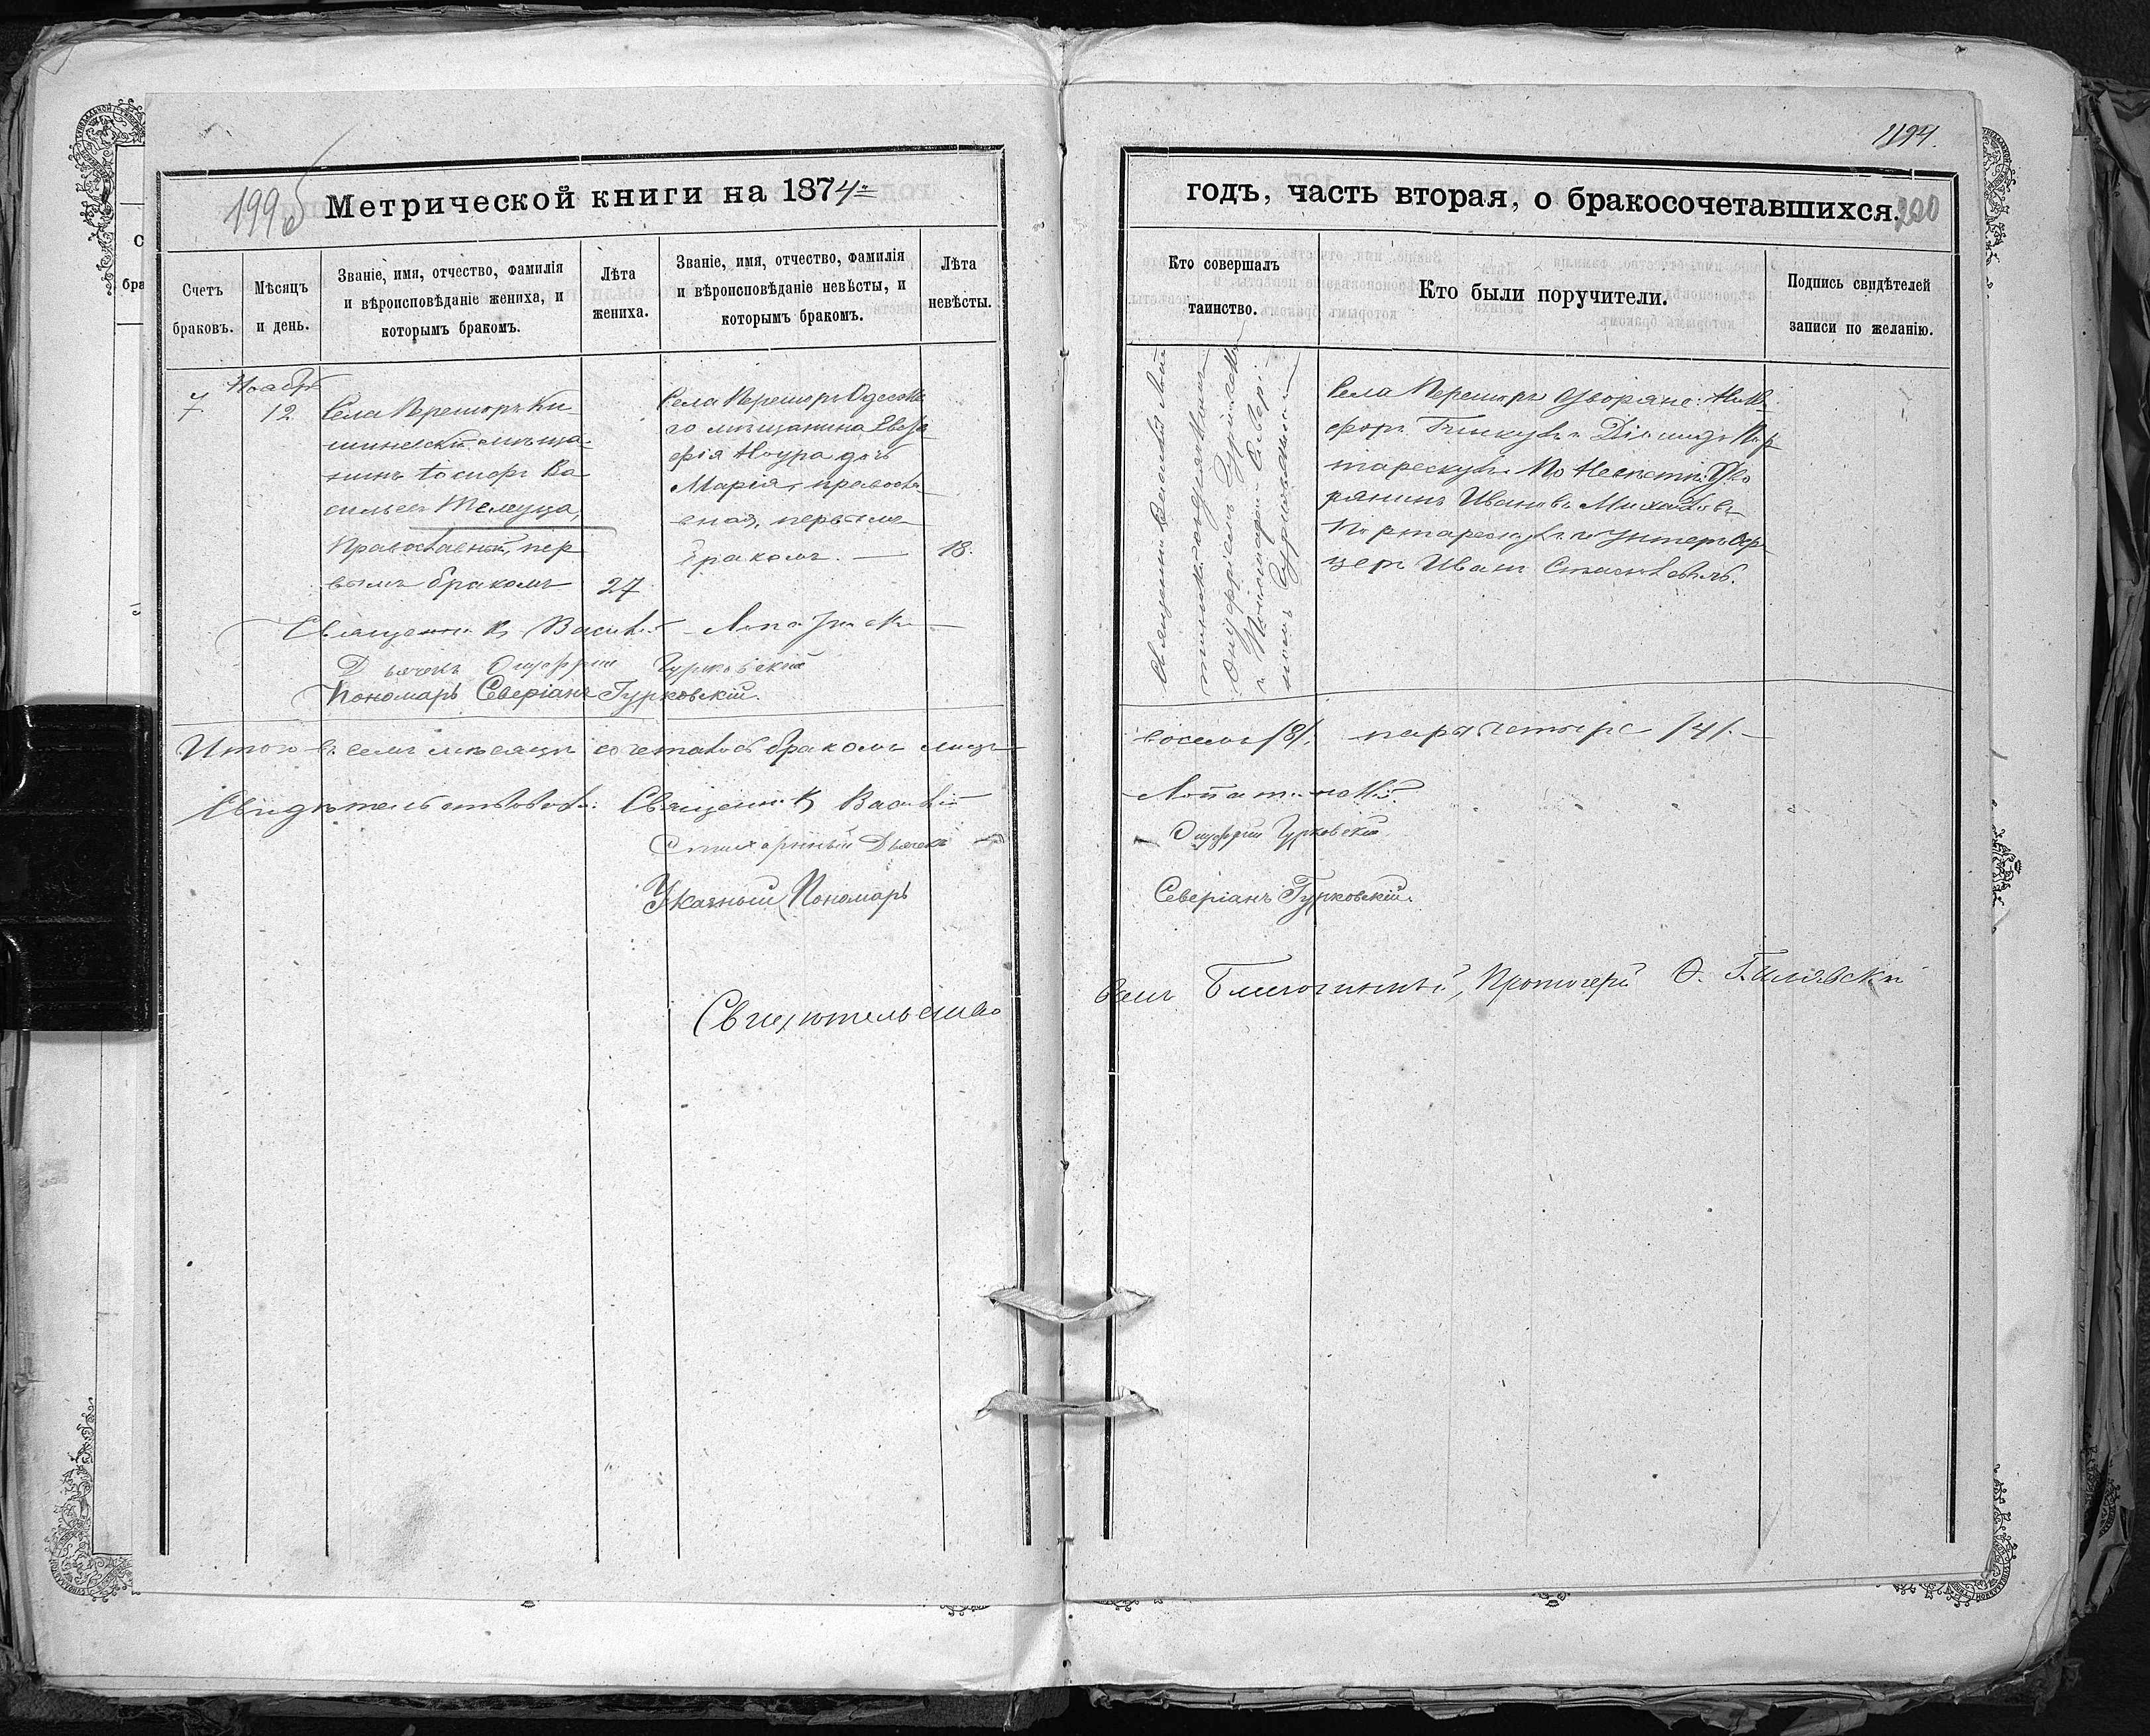 1194.
199 об
Метрической книги на 1874:
годъ, часть вторая, о бракосочетавшихся.
200
Счетъ браковъ.
Мѣсяцъ и день.
Званіе, имя, отчество, фамилія
и вѣроисповѣданіе жениха, и
которымъ бракомъ.
Лѣта
жениха.
Званіе, имя, отчество, фамилія
и вѣроисповѣданіе невѣсты, и
которымъ бракомъ.
Лѣта
невѣсты.
Кто совершалъ
таинство.
Кто были поручители.
Подпись свидѣтелей
записи по желанію.
7
Ноабр
12
Села Перешоръ Ки-
шиневскій мѣща-
нинъ Іосифъ Ва
сильевъ Телеуца,
Православный, пер
вымъ бракомъ
27
Села Перешоръ Одесска
го мѣщанина
фія Ноура дочь
Марія, православ
ная, первымъ
бракомъ. —
18.
Священникъ Василій
Села Перешоръ дворяне: Ники
форъ
По невѣстѣ: Дво
рянинъ Иванъ Михайловъ
и Унтеръ Офи
церъ Иванъ
Священникъ Василій Лопатинскій
Дьячекъ Онуфрій Гурковскій
Пономарь Северіанъ Гурковскій.
Итого въ семъ мѣсяцѣ сочеталось бракомъ лицъ
восемь /8/. паръ четыре /4/. —
Свидѣтельствовали: Священникъ Василій
Лопатинскій.
Стихарный Дьячекъ
Онуфрій Гурковскій
Указный Пономарь
Северіанъ Гурковскій.
Свидѣтельство
валъ Благочинный, Протоіерей